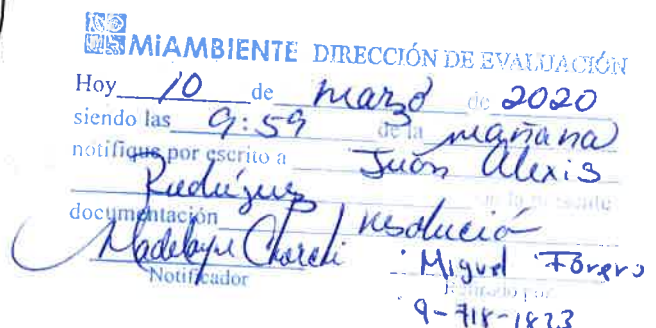 MiAMBIENTE DIRECCIÓN DE EVALUACIÓN
Hoy 10 de marzo de 2020
siendo las 9:59 de la mañana
notifique por escrito a Juan Alexis
Rodríguez de la presente
documentación resolució
Madelayne
Notificador
Miguel Forero
Retirado por
9-718-1823